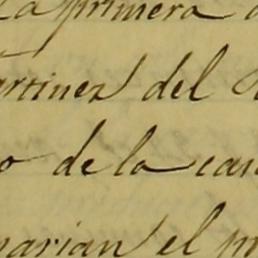 La primera
artinez del
o de la cas
narian el p